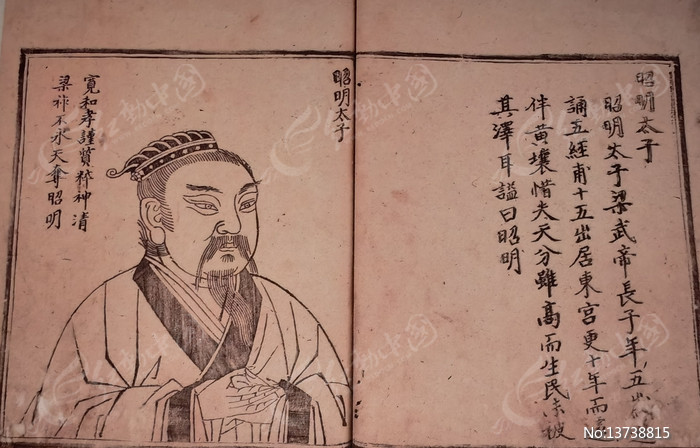 昭明太子
昭明太子梁武帝長子年五
誦五經甫十五出居東宮更十年而
伴黃壤惜夫天分雖高而生民未被
其澤耳謚曰昭明
昭明太子
寬和孝謹質粹神清
梁祚不永天奪昭明
红动中国
No:13738815